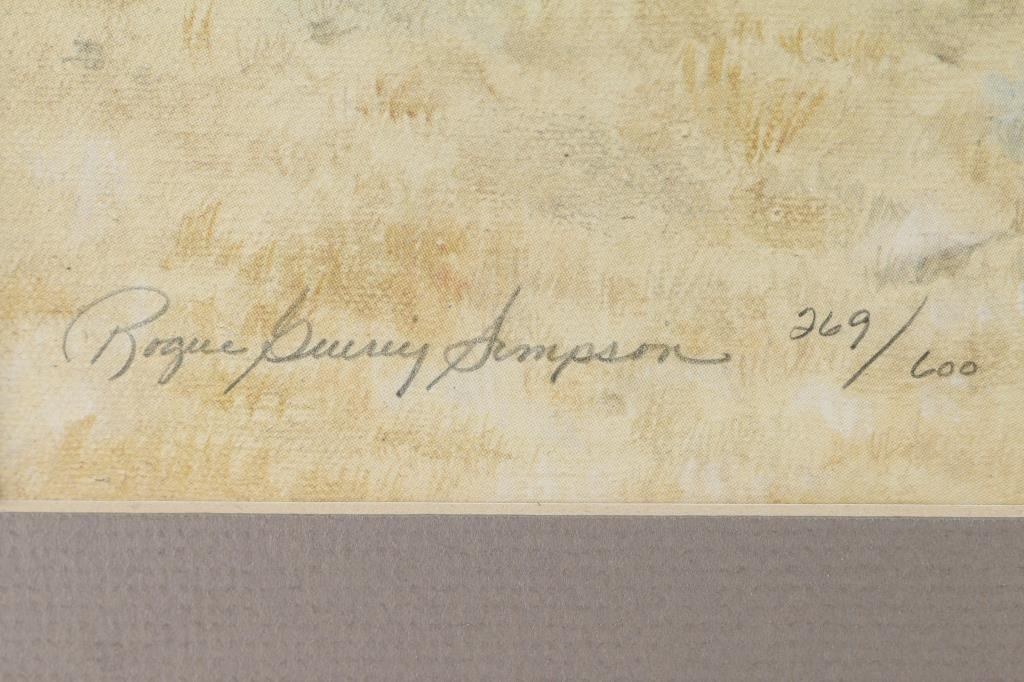 Rogue Guirey Simpson 269/600